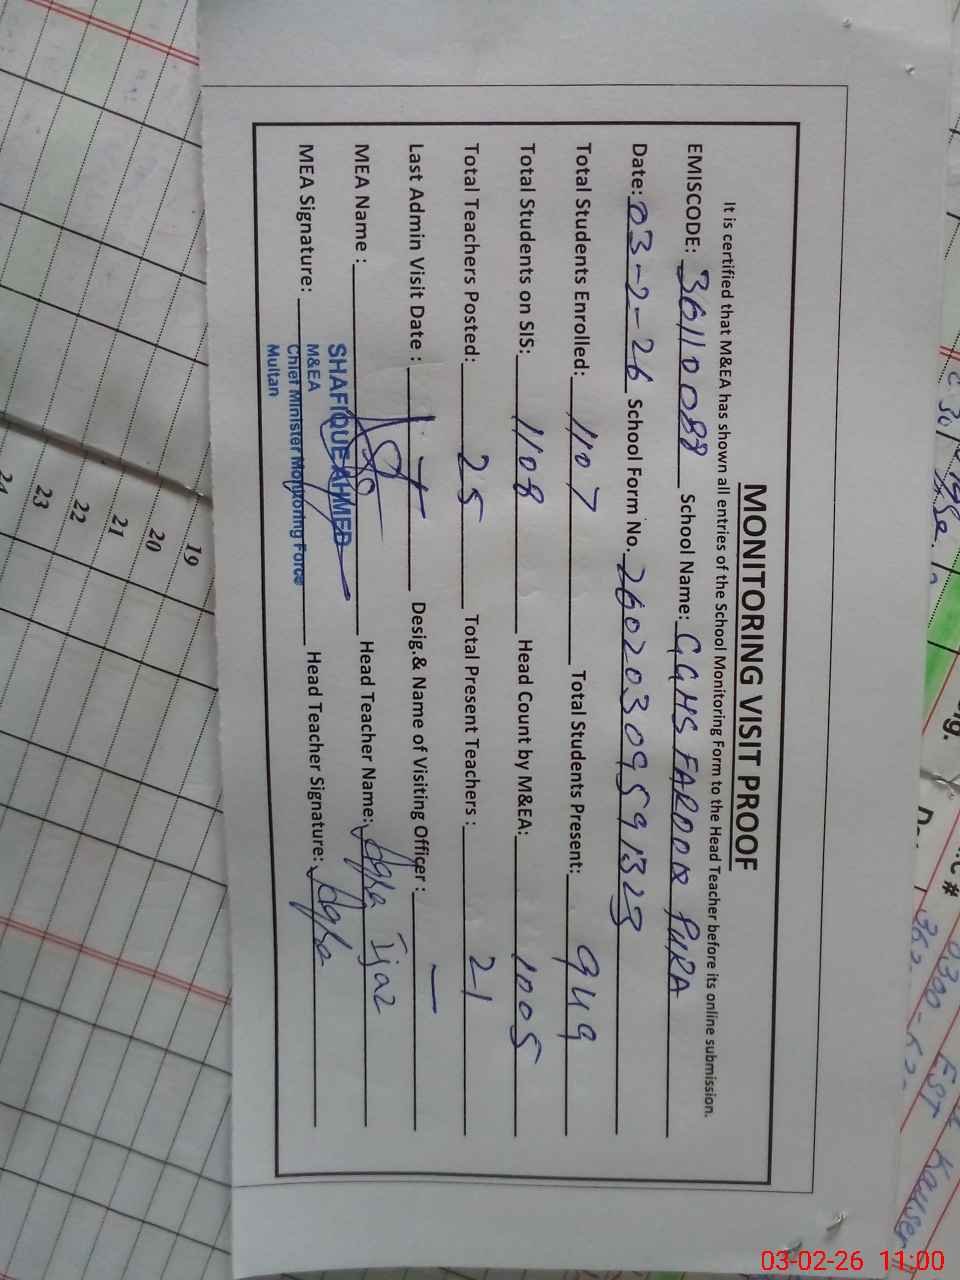 MONITORING VISIT PROOF
It is certified that M&EA has shown all entries of the School Monitoring Form to the Head Teacher before its online submission.
EMISCODE: 36110088 School Name: GGHS FAROOQ PURA
Date: 03-2-26 School Form No. 26020309591323
Total Students Enrolled: 1107 Total Students Present: 949
Total Students on SIS: 1108 Head Count by M&EA: 1005
Total Teachers Posted: 25 Total Present Teachers : 21
Last Admin Visit Date : Desig.& Name of Visiting Officer : —
MEA Name : Head Teacher Name: Aqsa Ijaz
SHAFIQUE AHMED
MEA Signature: Head Teacher Signature: Aqsa
M&EA
Chief Minister Monitoring Force
Multan
19
20
21
22
23
24
03-02-26 11:00